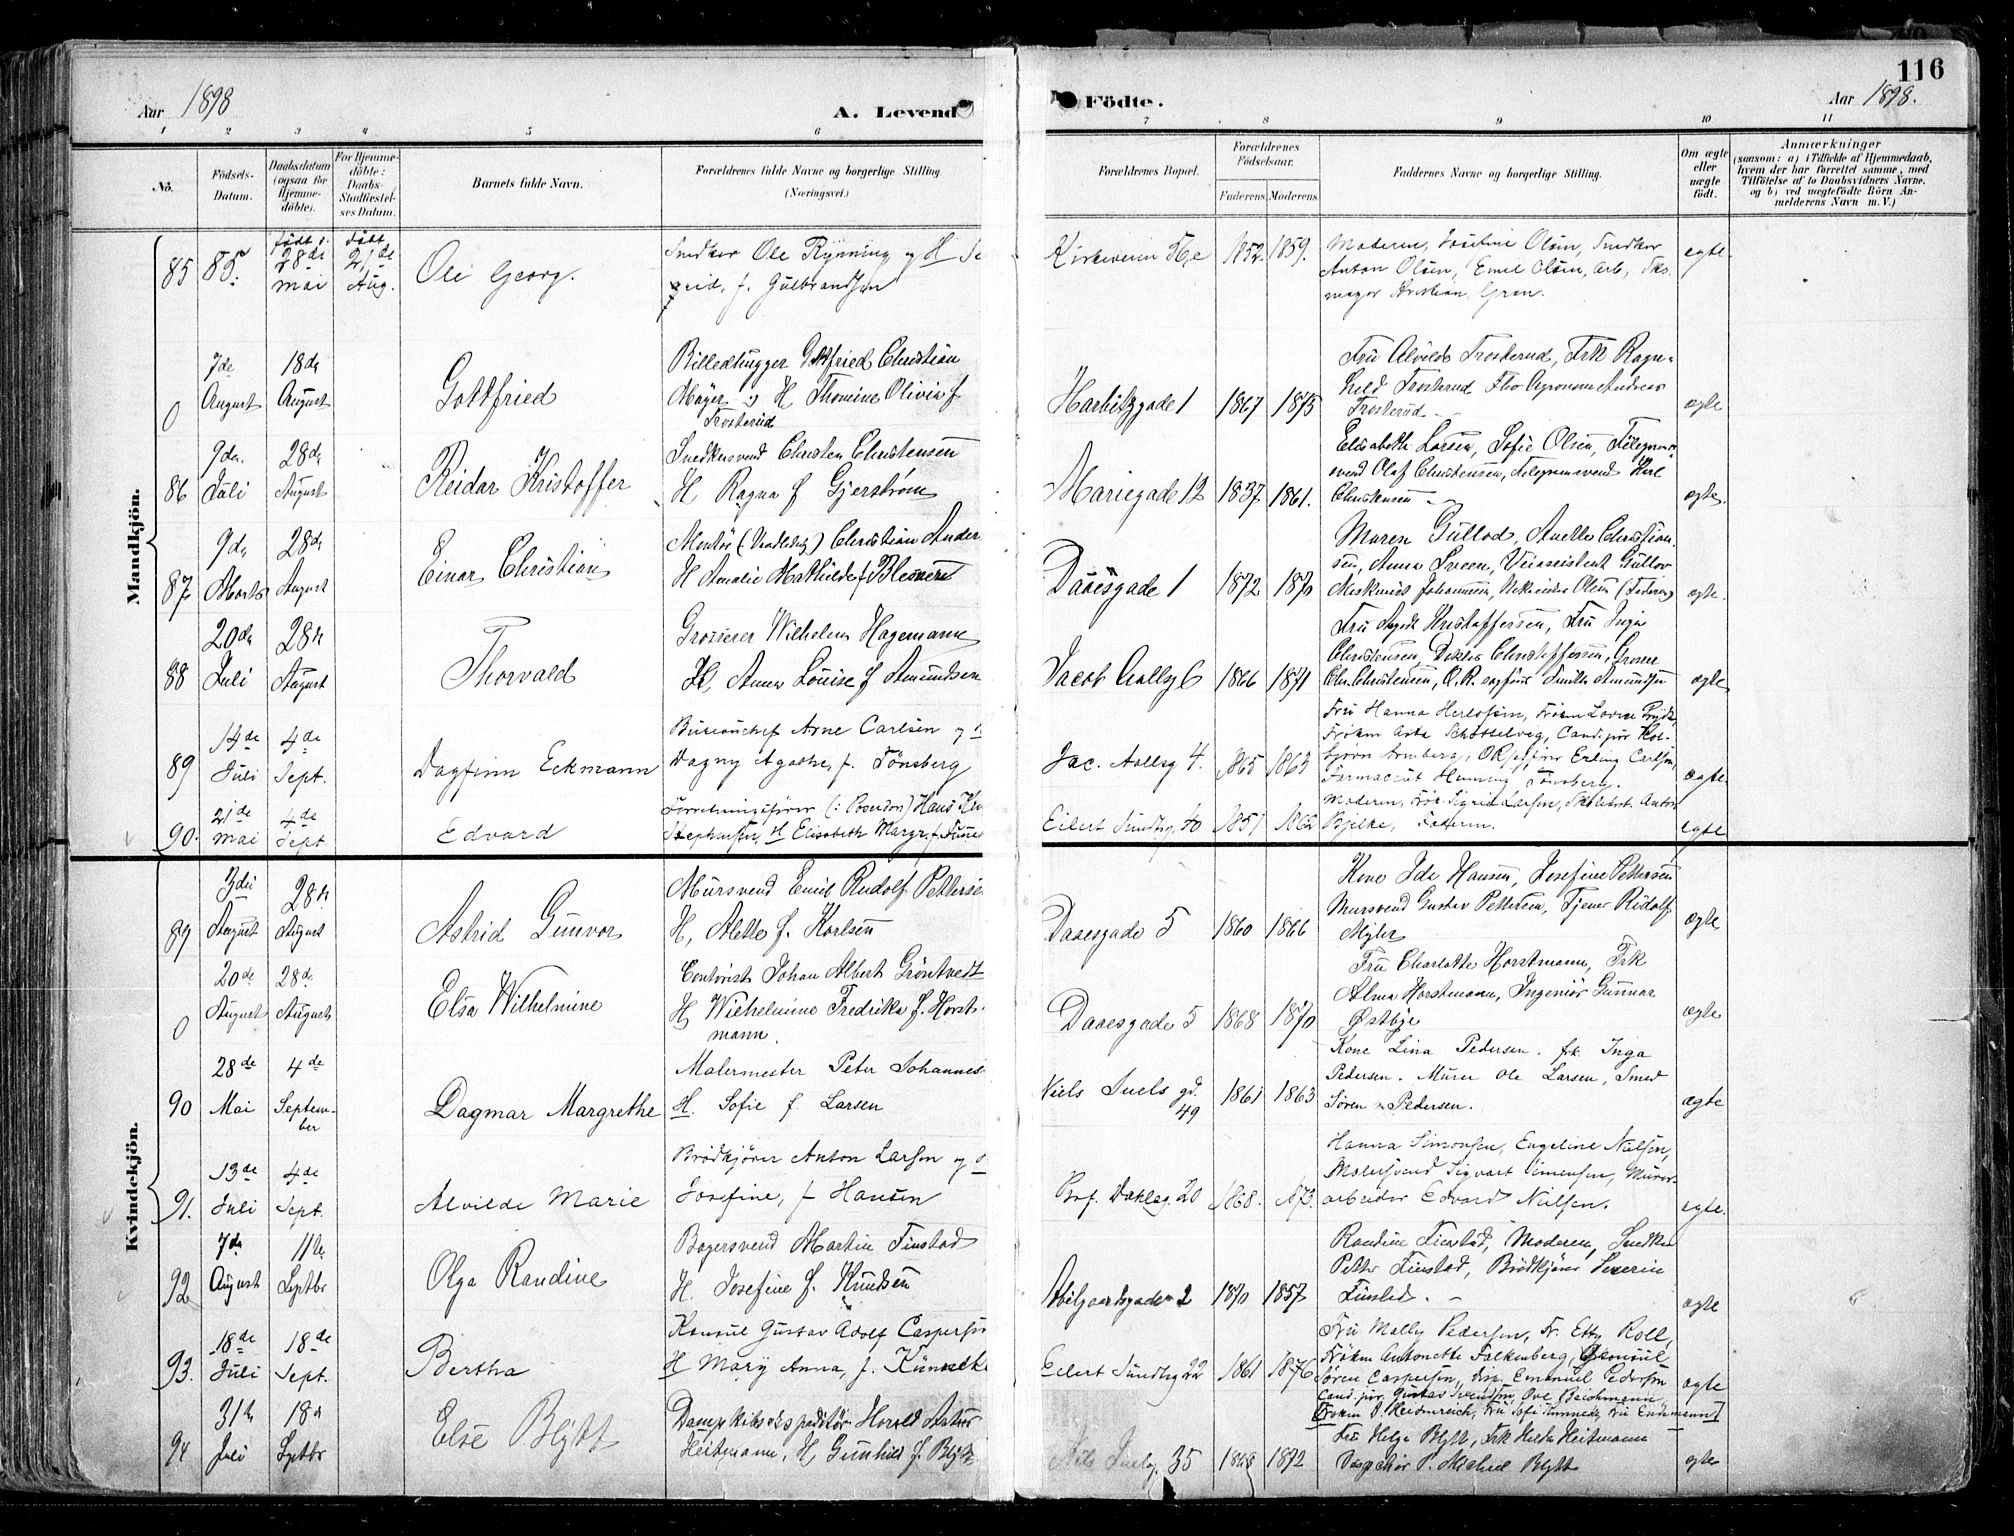 116
Aar 1898
A. Levende
Födte.
Aar 1898.
1 2 3 4 5 6 7 8 9 10 11
No.
Födsels-Datum.
Daabsdatum (ogsaa for Hjemme-döbte).
For Hjemme-döbte: Daabs-Stadfæstel-ses Datum.
Barnets fulde Navn.
Forældrenes fulde Navne og borgerlige Stilling
(Næringsvei.)
Forældrenes Bopæl.
Forældrenes Födselsaar.
Faderens Moderens
Faddernes Navne og borgerlige Stilling.
Om ægte eller uægte födt.
Anmærkninger
(saasom: a) i Tilfælde af Hjemmedaab,
hvem der har forrettet samme, med
Tilföielse af to Daabsvidners Navne,
og b) ved uægtefödte Börn An-
melderens Navn m. V.)
Mandkjön.
85 85. født 28de Mai døbt 21de Aug.
Ole Georg.
Snedker Ole Rynning og H
f. Gulbrandsen
Kirkeveien 56,e 1852. 1859.
Moderen, Josefine Olsen, Snedker
Anton Olsen, Emil Olsen, Arb, Sko-
mager Kristian Gran.
egte.
0 7de August 18de August
Gottfried
Billedhugger Gottfried Christian
Mayer og H Thomine Olivia f
Trosterud
Harbitzgade 1 1867 1875
Fru Alvilde Trosterud, Frk Ragn-
hild Trosterud Agronom Andreas
Trosterud
ægte
86 9de Juli 28de August
Reidar Kristoffer
Snedkersvend Christen Christensen
H Ragna f Gjerstrøm
Mariegade 12 1837 1861.
Elisabeth Larsen, Sofie Olsen,
Olaf Christensen, Karl
Christensen
ægte.
87 9de Marts 28de August
Einar Christian
Montør Christian Ander
H Amalie Mathilde f
Daaesgade 1 1872 1870
Maren Gullod, Anette Christian-
sen, Anna Sveen,
Johannesen, Olsen
ægte.
88 20de Juli 28de August
Thorvald
Grosserer Wilhelm Hagemann
H, Anna Louise f Amundsen
Jacob Aallsg 6 1866 1871
Fru Kristoffersen, Fru Inga
Christensen, Christoffersen, Grosser
Chr. Christensen, Amundsen
ægte
89 14de Juli 4de Sept.
Dagfinn Eckmann
Bureauchef Arne Carlsen og
Dagny Agathe, f. Tönsberg
Jac. Aallsg 4. 1865 1863
Fru Hanna Herlofsen,
Frøken Schøttelvig, Cand. jur
Erling Carlsen,
Farmaceut Henning Tönsberg.
ægte
90. 21de Mai 4de Sept
Edvard
Forretningsfører Hans
Stephensen, H Elisabeth Margr. f.
Eilert Sundtsg. 40 1857 1862
Moderen, Frøk Sigrid Larsen, Anton
Bjelke, Faderen.
egte
Kvindekjön.
89 3die August 28de August
Astrid Gunvor
Mursvend Emil Rudolf Petterse
H, Alette f. Karlsen
Daaesgade 5 1860 1866
Kone Ida Hansen, Josefine Pettersen
Mursvend Gustav Pettersen, Tjener Rudolf
ægte
0 20de August 28de August
Elsa Wilhelmine
Contorist Johan Albert Gröntvedt
H Wilhelmine Fredrikke f. Horst-
mann.
Daaesgade 5 1868 1870
Fru Charlotte Horstmann, Frk
Alma Horstmann, Ingeniör Gunnar
Østbye
ægte
90 28de Mai 4de Septem-ber
Dagmar Margrethe
Malermester Peter Johannes
H. Sofie f. Larsen
Niels Juels gd. 49 1861 1863
Kone Lina Pedersen. frk. Inga
Pedersen. Murer Ole Larsen, Smed
Søren Pedersen.
ægte
91. 13de Juli 4de Sept.
Alvilde Marie
Brödkjörer Anton Larsen og
Josefine, f Hansen
Prof. Dahlsg. 20 1868. 1873.
Hanna Simonsen, Engeline Nielsen,
Malersvend Sigvart Simensen, Murer-
arbeider Edvard Nielsen.
egte.
92 7de August 11te Septbr
Olga Randine
Bagersvend Martin Finstad
H. Josefine f. Knudsen
Abilgaardsgade 2 1870 1857
Randine Finstad, Moderen, Snedker
Petter Finstad, Brödkjörer Severin
Finstad.
ægte
93. 18de Juli 18de Sept.
Bertha
Konsul Gustav Adolf Caspersen
H Mary Anna, f.
Eilert Sundtsg 22 1861 1876
Fru Molly Pedersen, Fr. Etty Roll,
Frøken Antonette Falkenberg, Gkonsul
Søren Caspersen, disp. Emanuel Pedersen
Cand. jur. Gustav Svendsen, Ove Beichmann
Frøken Heidenreich, Fru Sofie
ægte
94 31te Juli 18d Septbr
Else Blytt
Dampskibsekspeditör Harald Astur
Heitmann, H Gunhild f. Blytt
Nils Juelsg. 35 1868 1872
Fru Helga Blytt, Frk Hilda Heitmann
P. Michael Blytt
ægte